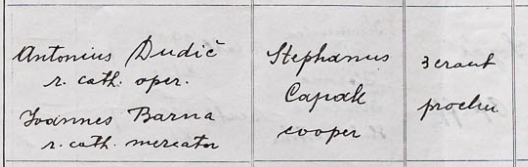 Antonius Dudič
r. cath. oper.
Joannes Barna
r. cath. mercator
Stephanus
Capák
cooper
3 eraut
proclu